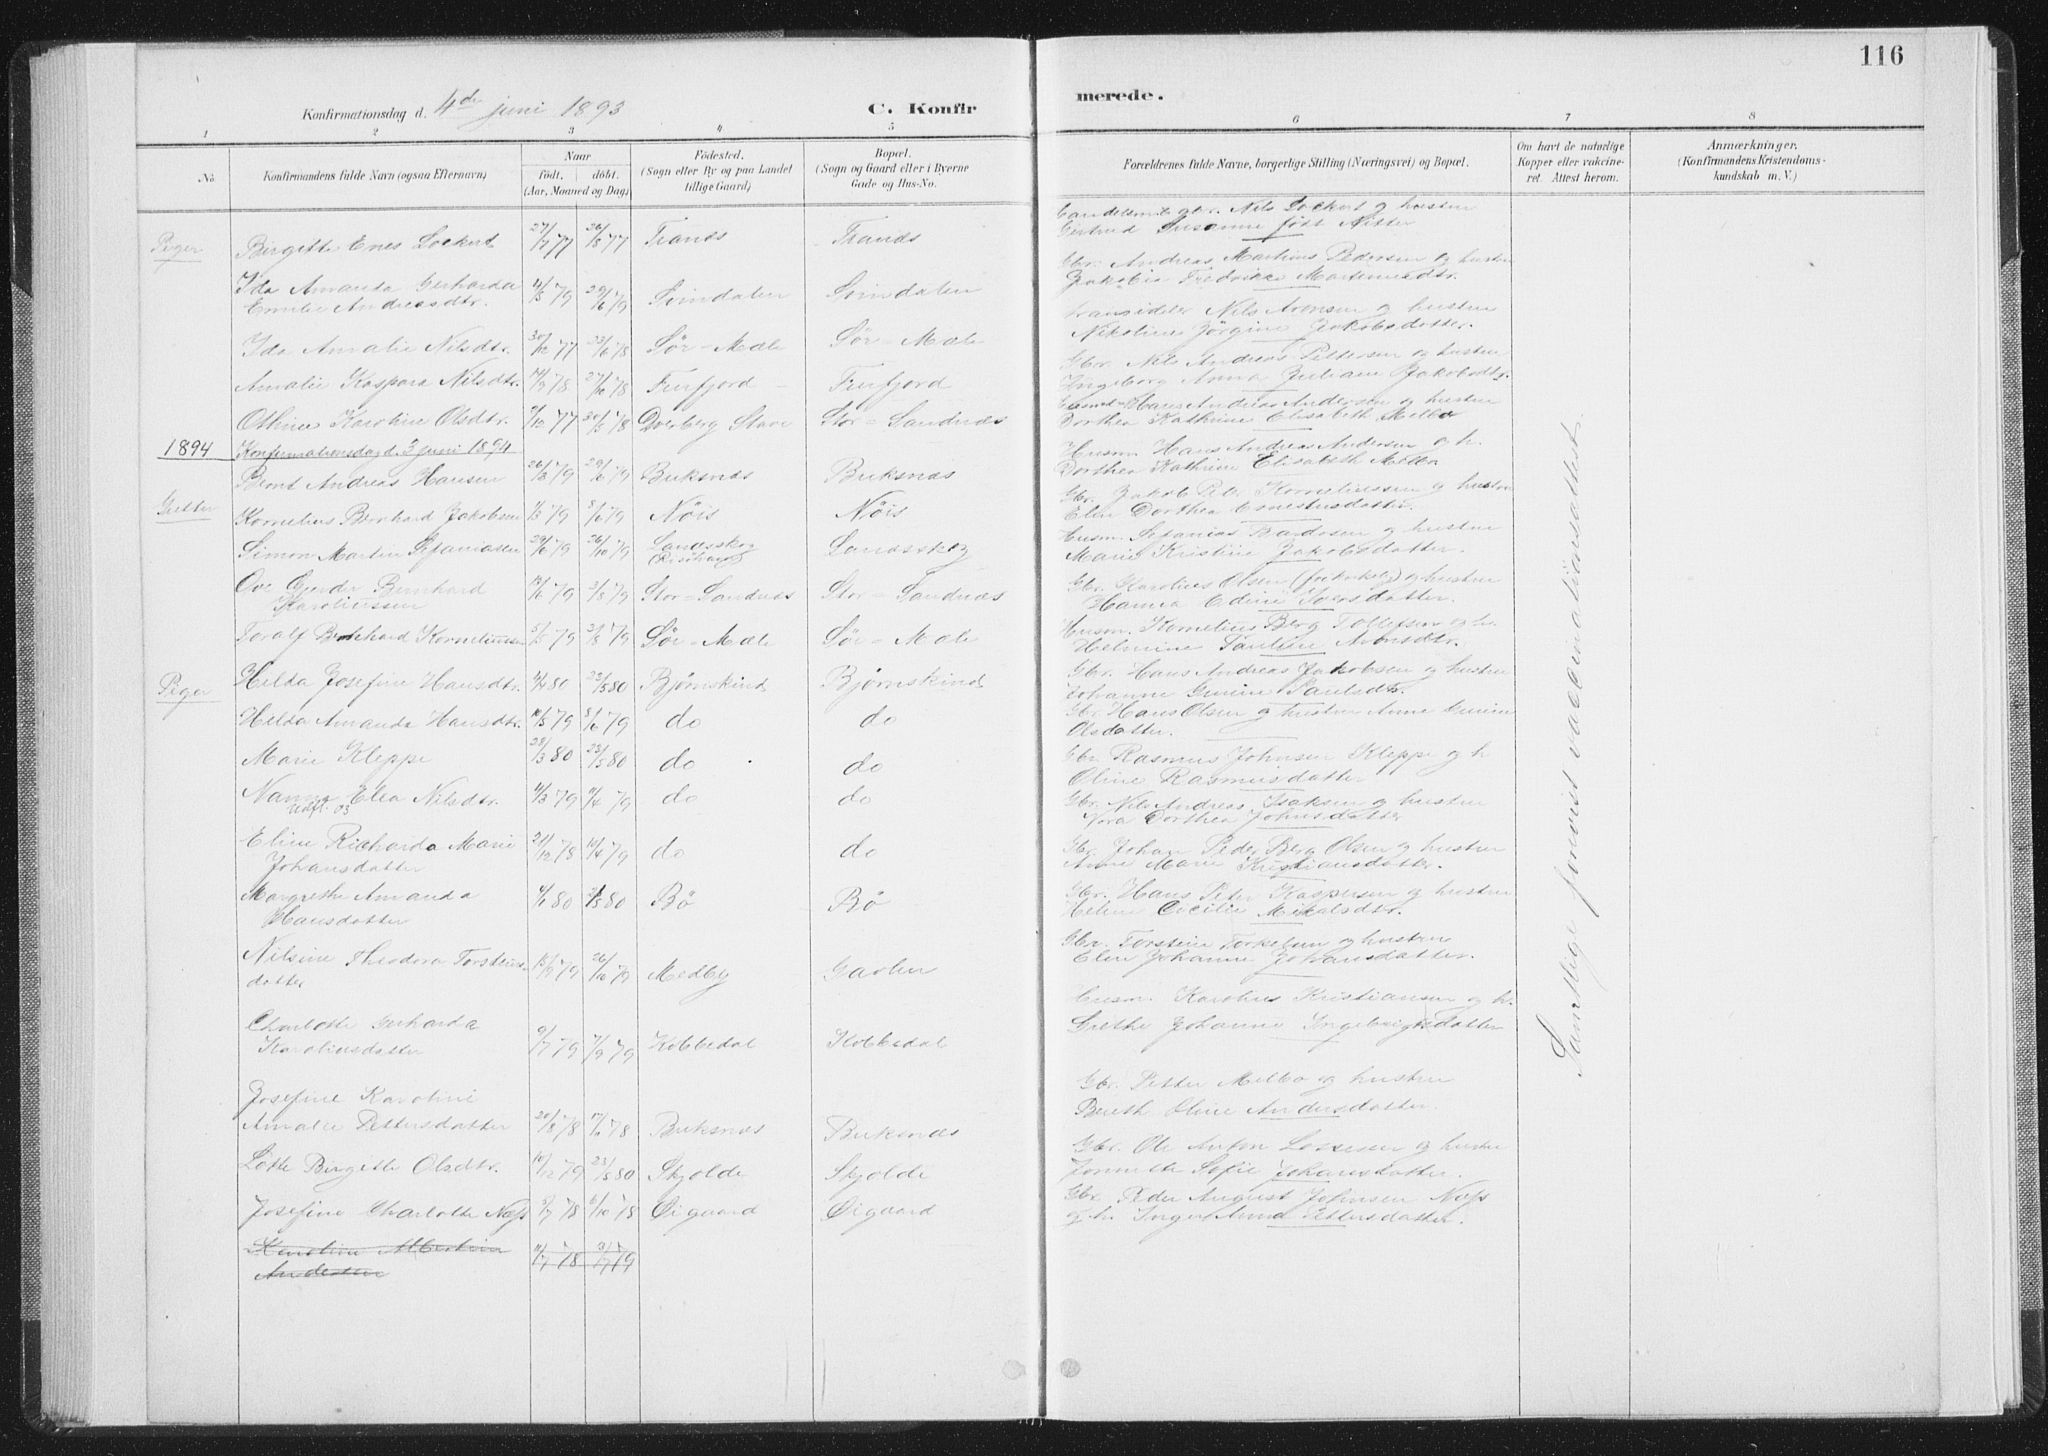 116
Konfirmationsdag d. 4de juni 1893
C. Konfir
merede.
1 2 3 4 5 6 7 8
No.
Konfirmandens fulde Navn (ogsaa Efternavn)
Naar
født. døbt.
(Aar, Maaned og Dag)
Fødested.
(Sogn eller By og paa Landet
tillige Gaard)
Bopæl.
(Sogn og Gaard eller i Byerne
Gade og Hus-No.
Forældrenes fulde Navne, borgerlige Stilling (Næringsvei) og Bopæl.
Om havt de naturlige
Kopper eller vakcine-
ret. Attest herom.
Anmærkninger.
(Konfirmandens Kristendoms-
kundskab m. V.)
Piger
Birgitte Enes Lockert 27/7 77 26/8 77 Trands Trands
Nils Lockert og hustru
Gertrud Susanne født Nitter
Ida Amanda Gerharda
Emilie Andreasdtr. 4/5 79 29/6 79 Svindalen Svindalen
Gbr. Andreas Martins Pedersen og hustru
Jakobia Fredrikke Martinusdtr.
Ida Amalie Nilsdtr. 30/12 77 23/6 78 Sør-Mæle Sør-Mæle
Nils Aronsen og hustru
Nikoline Jørgine Jakobsdatter.
Amalie Kaspara Nilsdtr. 14/9 78 27/10 78 Fiurfjord Fiurfjord
Gbr. Nils Andreas Pettersen og hustru
Ingeborg Anna Juliane Jakobsdtr.
Othine Karoline Olsdtr. 9/12 77 30/5 78 Dverberg Stave Stor-Sandnæs
Hans Andreas Andersen og hustru
Dorthea Kathrine Elisabeth Melbo
1894
Konfirmationsdag d. 3 juni 1894
Bernt Andreas Hansen 26/3 79 29/6 79 Buksnæs Buksnæs
Husm. Hans Andreas Andersen og h.
Dorthea Kathrine Elisabeth Melbo
Gutter
Kornelius Bernhard Jakobsen 1/3 79 8/6 79 Nöis Nöis
Gbr. Jakob Peter Korneliussen og hustru
Elen Dorthea Ernestusdatter.
Simon Martin Stefaniasen 29/6 79 26/10 79 Landsskog Landsskog
Husm. Stefanias Bardosen og hustru
Marie Kristine Jakobsdatter.
Ove Bernhard
Karoliussen 13/6 79 3/8 79 Stor-Sandnæs Stor-Sandnæs
Gbr. Karolius Olsen og hustru
Hanna Edine Iversdatter.
Toralf Bernhard Korneliussen 5/5 79 3/8 79 Sør-Mæle Sør-Mæle
Husm. Kornelius Berg Tollefsen og h.
Helmine Pauline Aronsdtr.
Piger
Helda Josefine Hansdtr. 4/4 80 23/5 80 Bjørnskind Bjørnskind
Gbr. Hans Andreas Jakobsen og hustru
Johanne Gunine Paulsdtr.
Helda Amanda Hansdtr. 10/5 79 8/6 79 do do
Gbr. Hans Olsen og hustru Anne
Olsdatter.
Marie Kleppe 28/3 80 23/5 80 do do
Gbr. Rasmus Johnsen Kleppe og h
Oline Rasmusdatter
Nanna Elea Nilsdtr. 4/3 79 4/4 79 do do
Udfl. 03
Gbr. Nils Andreas Isaksen og hustru
Nora Dorthea Johnsdatter
Eline Richarda Marie
Johansdatter 21/12 78 14/4 79 do do
Gbr. Johan Peder Berg Olsen og hustru
Anne Marie Kristiansdatter.
Margrethe Amanda
Hansdatter 4/1 80 2/5 80 Bö Bö
Gbr. Hans Peter Kaspersen og hustru
Heline Cecilie Mikalsdtr.
Nilsine Theodora Torsteins-
datter 15/9 79 26/10 79 Medby
Gbr. Torstein Torkelsen og hustru
Elen Johanne Johansdatter.
Charlotte Gerharda
Karoliusdatter 9/7 79 7/9 79 Kobbedal Kobbedal
Husm. Karolius Kristiansen og h.
Grethe Johanne Ingebrigtsdatter
Josefine Karoline
Amalie Pettersdatter 20/8 78 17/11 78 Buksnæs Buksnæs
Gbr. Petter Melbo og hustru
Bereth Oline Andersdatter
Lotte Birgitte Olsdtr. 10/12 79 23/5 80 Skjolde Skjolde
Gbr. Ole Anton Lassesen og hustru
Jonnette Sofie Johansdatter.
Josefine Charlotte Næss 5/7 78 6/10 78 Øigaard Øigaard
Gbr. Peder August Johnsen Næss
og h. Inger Anna Pettersdatter.
Karoline Albertine
Andersen 11/7 78
Samtlige forevist vaccinationsattest.